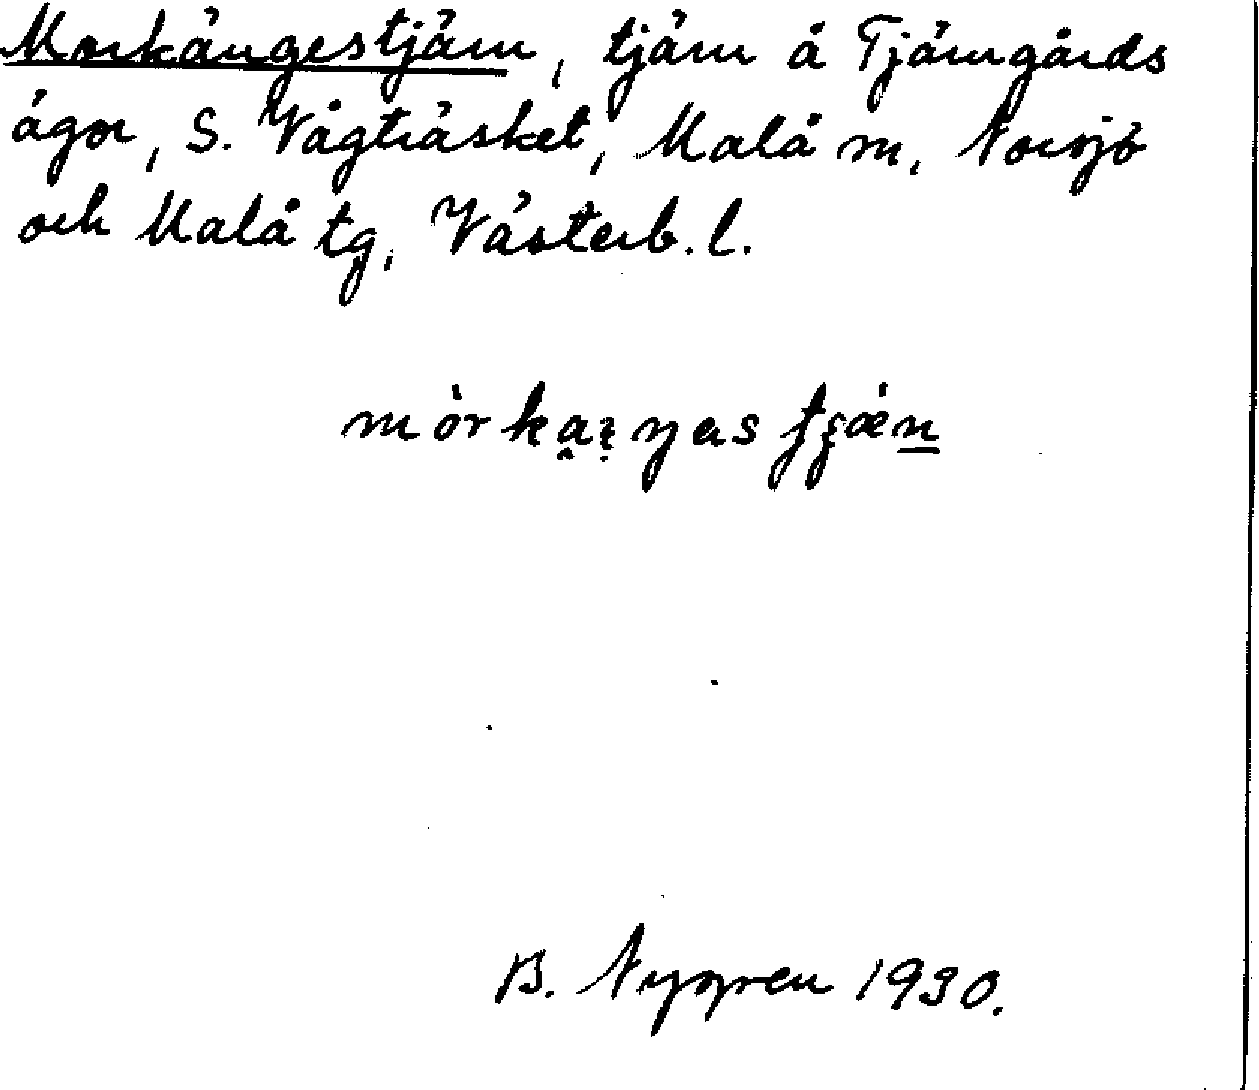 Morkängestjärn, tjärn å Tjärngårds
ägor, S. Vågträsket, Malå sn, Norsjö
och Malå tg, Västerb. l.
B. Nygren 1930.